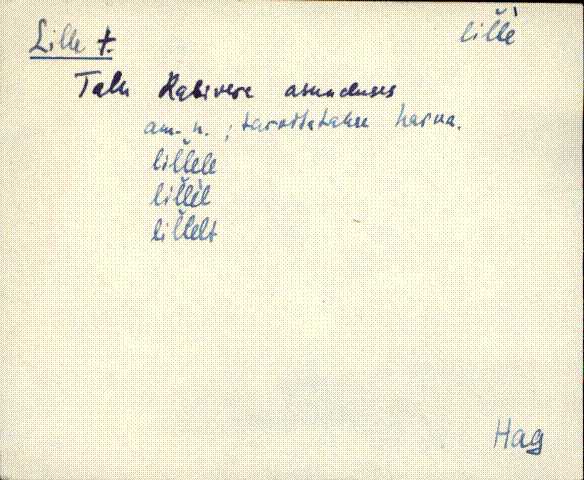 Lille t.
lil̆l̆è
Talu Rabivere asunduses
am. n.; tarvitatakse harva.
lil̆l̆ele
lil̆l̆èl
lil̆l̆elt
Hag